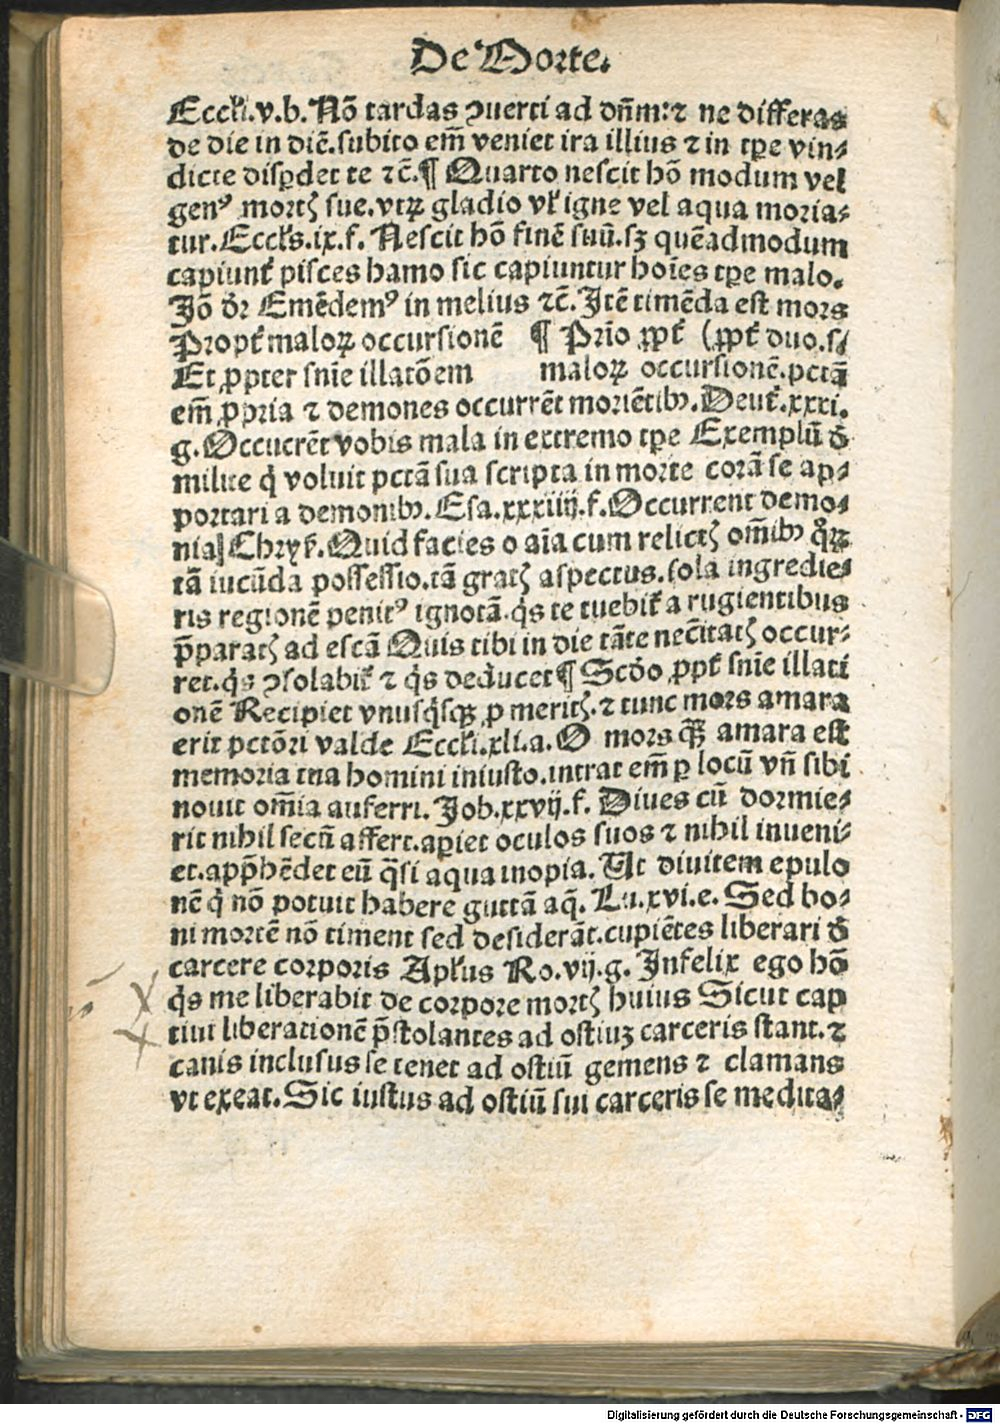 De Morte.
Eccłi.v.b. Nō tardas ꝯuerti ad dn̄m: ⁊ ne differas
de die in diē. subito em̄ veniet ira illius ⁊ in tꝑe vin⸗
dicte disꝑdet te ⁊c̄. ¶ Quarto nescit hō modum vel
genꝰ mortꝭ sue. vtꝝ gladio vł igne vel aqua moria⸗
tur. Eccłs.ix.f. Nescit hō finē suū. sꝫ quēadmodum
capiunt̄ pisces hamo sic capiuntur hoīes tꝑe malo.
Iō dr̄ Emēdemꝰ in melius ⁊c̄. Itē timēda est mors
Propt̄ maloꝝ occursionē ¶ Prīo ꝓpt̄ (ꝓpt̄ duo.s/
Et ꝓpter sn̄ie illatōem maloꝝ occursionē. pctā
em̄ ꝓpria ⁊ demones occurrēt moriētibꝰ. Deut̄.xxxi.
g. Occucrēt vobis mala in extremo tꝑe Exemplū d̄
milite q̇ voluit pctā sua scripta in morte corā se ap⸗
portari a demonibꝰ. Esa.xxxiiij.f. Occurrent demo⸗
nia] Chryſ. Quid facies o aīa cum relictꝭ om̄ibꝰ qͦꝝ
tā iucūda possessio. tā gratꝭ aspectus. sola ingredie⸗
ris regionē penitꝰ ignotā. q̇s te tuebit̄ a rugientibus
p̄paratꝭ ad escā Quis tibi in die tāte nec̄itatꝭ occur⸗
ret. q̇s ꝯsolabit̄ ⁊ q̇s deducet ¶ Scdo ꝓpt̄ sn̄ie illati
onē Recipiet vnusq̇sqꝫ ꝓ meritꝭ. ⁊ tunc mors amara
erit pctōri valde Eccłi.xli.a. O mors qꝫ̄ amara est
memoria tua homini iniusto. intrat em̄ ꝑ locū vn̄ sibi
nouit om̄ia auferri. Job.xxvij.f. Diues cū dormie⸗
rit nihil secū affert. aꝑiet oculos suos ⁊ nihil inueni⸗
et. app̄hēdet eū q̄si aqua inopia. Ut diuitem epulo
nē q̇ nō potuit habere guttā aq̄. Lu.xvi.e. Sed bo⸗
ni mortē nō timent sed desiderāt. cupiētes liberari d̄
carcere corporis Apłus Ro.vij.g. Infelix ego hō
q̇s me liberabit de corpore mortꝭ huius Sicut cap
tiui liberationē p̄stolantes ad ostiuꝫ carceris stant. ⁊
canis inclusus se tenet ad ostiū gemens ⁊ clamans
vt exeat. Sic iustus ad ostiū sui carceris se medita⸗
Digitalisierung gefördert durch die Deutsche Forschungsgemeinschaft - DFG